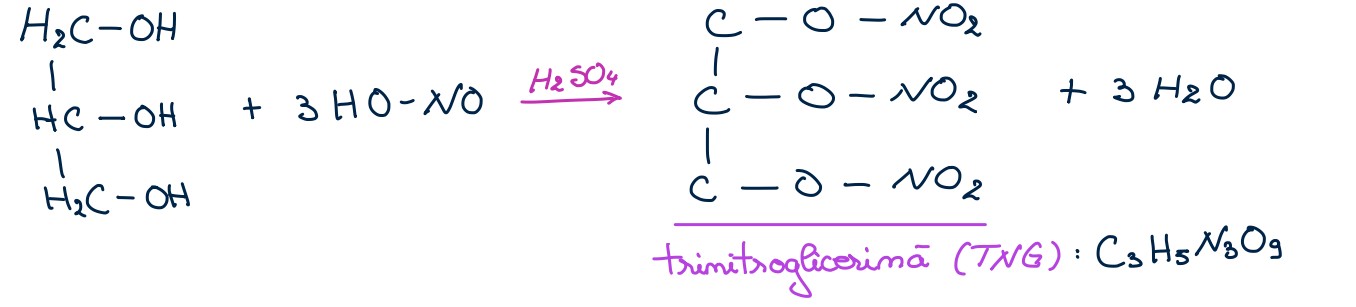 H₂C-OH C - O - NO₂
| |
HC - OH + 3 HO-NO H₂SO₄ → C - O - NO₂ + 3 H₂O
| |
H₂C-OH C - O - NO₂
trinitroglicerină (TNG) : C₃H₅N₃O₉